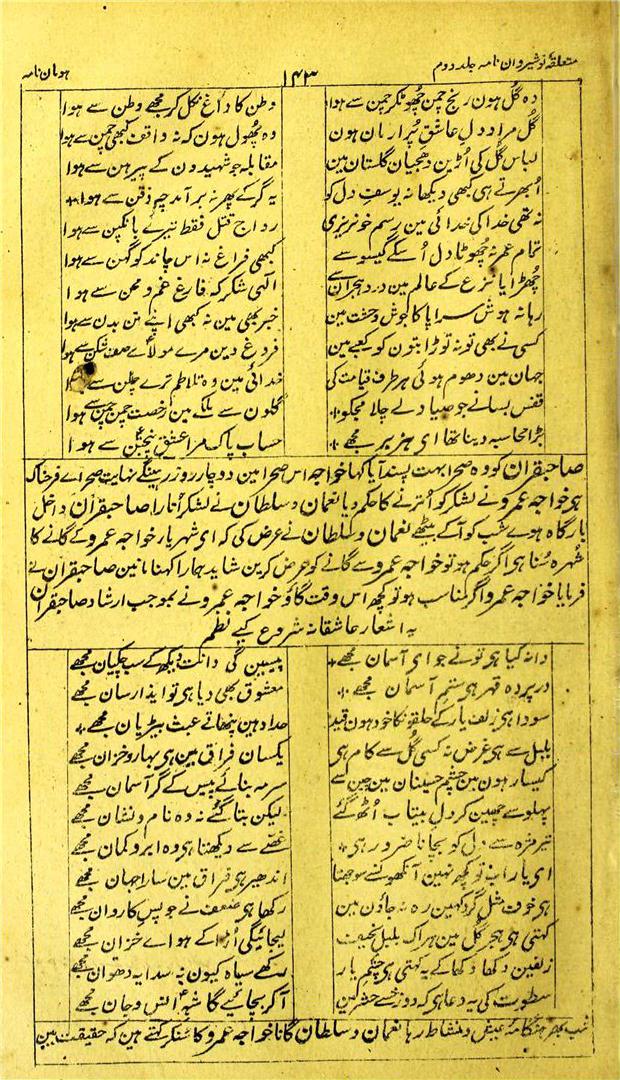 متعلقہ نوشیروان نامہ جلد دوم ۱۴۳ ہومان نامہ
وہ گُل ہون رنج چمن چھوٹکر چمن سے ہوا وطن کا داغ نکل کر مجھے وطن سے ہوا
گُل مراد دلِ عاشق پُر ارمان ہون وہ پھول ہون کہ نہ واقف کبھی چمن سے ہوا
لباس گُل کی اُڑین دھجیان گلستان مین مقابلہ جو شہیدون کے پیرہن سے ہوا
اُبھرتے ہی کبھی دیکھا نہ یوسفِ دل کو یہ گر کے پھر نہ برآمد چہِ ذقن سے ہوا
نہ تھی خدا کی خدائی مین رسم خونریزی رواج قتل فقط تیرے بانکپن سے ہوا
تمام عمر نہ چھوٹا دل اُسکے گیسو سے کبھی فراغ نہ اس چاند کو گہن سے ہوا
چھڑایا نزع کے عالم مین درد ہجران سے الٰہی شکر کہ فارغ غم و محن سے ہوا
رہا نہ ہوش سراپا کا جوش وحشت مین خبر بھی مین نہ کبھی اپنے تن بدن سے ہوا
کسی نے بھی تو نہ توڑا بتون کو کعبے مین فروغ دین مرے مولاے صف شکن سے ہوا
جہان مین دھوم ہوئی ہر طرف قیامت کی خدائی مین وہ تلاطم ترے چلن سے ہوا
قفس بسانے جو صیاد لے چلا مجکو گلون سے ملکے مین رخصت چمن چمن سے ہوا
بڑا محاسبہ دینا تھا ای ہزبر مجھے حساب پاک مرا عشق پنجتن سے ہوا
صاحبقران کو وہ صحرا بہت پسند آیا کہا خواجہ اس صحرا مین دو چار روز رہینگے نہایت صحراے فرحناک
ہی خواجہ عمرو نے لشکر کو اُترنے کا حکم دیا نعمان و سلطان نے لشکر اُتارا صاحبقران داخل
بارگاہ ہوے شب کو آکے بیٹھے نعمان و سلطان نے عرض کی کہ ای شہریار خواجہ عمرو کے گانے کا
شُہرہ سُنا ہی اگر حکم ہو تو خواجہ عمرو سے گانے کو عرض کرین شاید ہمارا کہنا مانین صاحبقران نے
فرمایا خواجہ عمرو اگر مناسب ہو تو کچھ اس وقت گاؤ خواجہ عمرو نے بموجب ارشاد صاحبقران
یہ اشعار عاشقانہ شروع کیے نظم
دانہ کیا ہی تو نے جو ای آسمان مجھے پیسین گی دانت دیکھ کے سب چکیان مجھے
درپردہ قہر ہی ستم آسمان مجھے معشوق بھی دیا ہی تو ایذا رسان مجھے
سودا ہی زلف یار کے حلقونکا خود ہون قید حداد ہین پنھاتے عبث بیڑیان مجھے
بلبل سے ہی غرض نہ کسی گُل سے کام ہی یکسان فراق مین ہی بہار و خزان مجھے
کیسا رہون مین چشم حسینان مین چین سے سرمہ بنائے پیس کے گر آسمان مجھے
پہلو سے چھین کر دل بیتاب اُٹھ گئے لیکن بتا گئے نہ وہ نام و نشان مجھے
تیر مژہ سے دل کو بچانا ضرور ہی غصّے سے دیکھتا ہی وہ ابرو کمان مجھے
ای یار اب تو کچھ نہین آنکھونسے سوجھتا اندھیر ہی فراق مین سارا جہان مجھے
ہی خوف مثل گرد کہین رہ نہ جاؤن مین رکھا ہی ضعف نے جو پس کاروان مجھے
کہتی ہی ہجر گُل مین ہر اک بلبل نحیف لیجائیگی اُڑا کے ہواے خزان مجھے
زلفین دکھا دکھا کے یہ کہتی ہی چشم یار رکھے سیاہ کیون نہ سدا یہ دھوان مجھے
سطوت کی یہ دعا ہی کہ دوزخ سے حشر مین آکر بچائے گا شہِ انس و جان مجھے
شب بھر ہنگامۂ عیش و نشاط رہا نعمان و سلطان گانا خواجہ عمرو کا سُنکر کہتے ہین کہ حقیقت مین